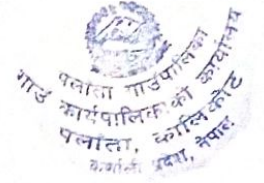 पलाँता गाउँपालिका
गाउँ कार्यपालिकाको कार्यालय
पलाँता, कालिकोट
कर्णाली प्रदेश, नेपाल